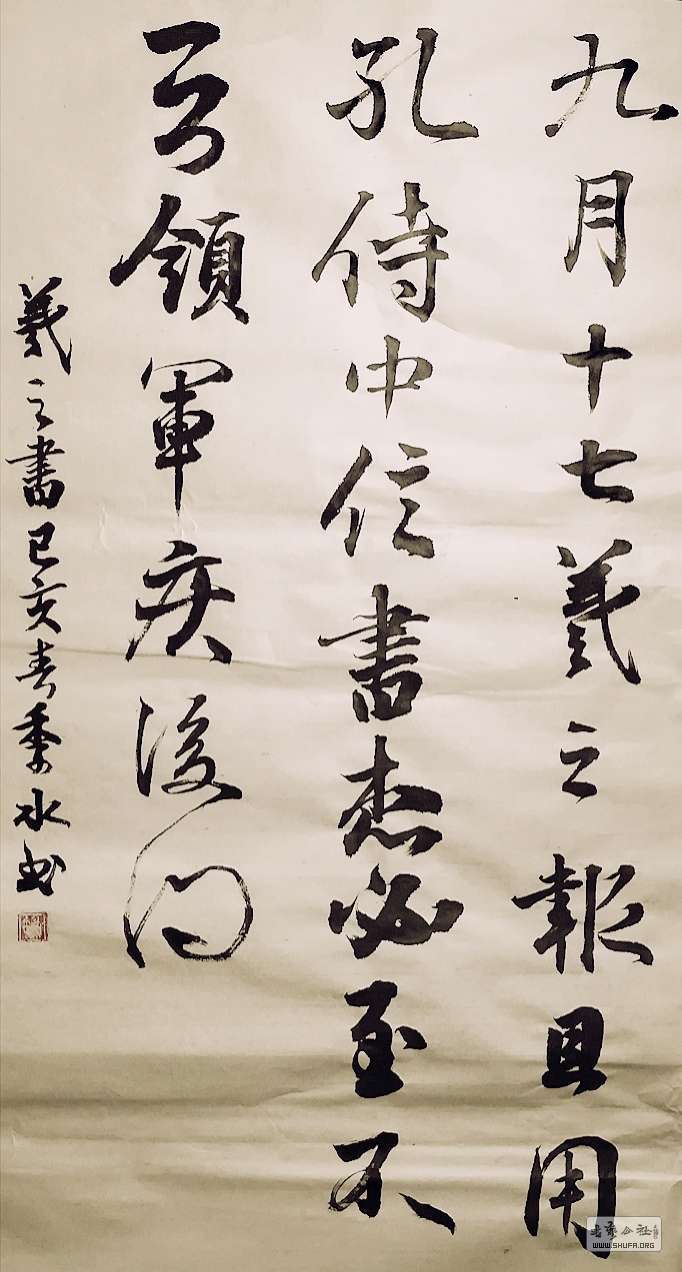 九月十七羲之報且用
孔侍中信書想必至不
知領軍疾後問
羲之書己亥春黍水书
书法公社
WWW.SHUFA.ORG